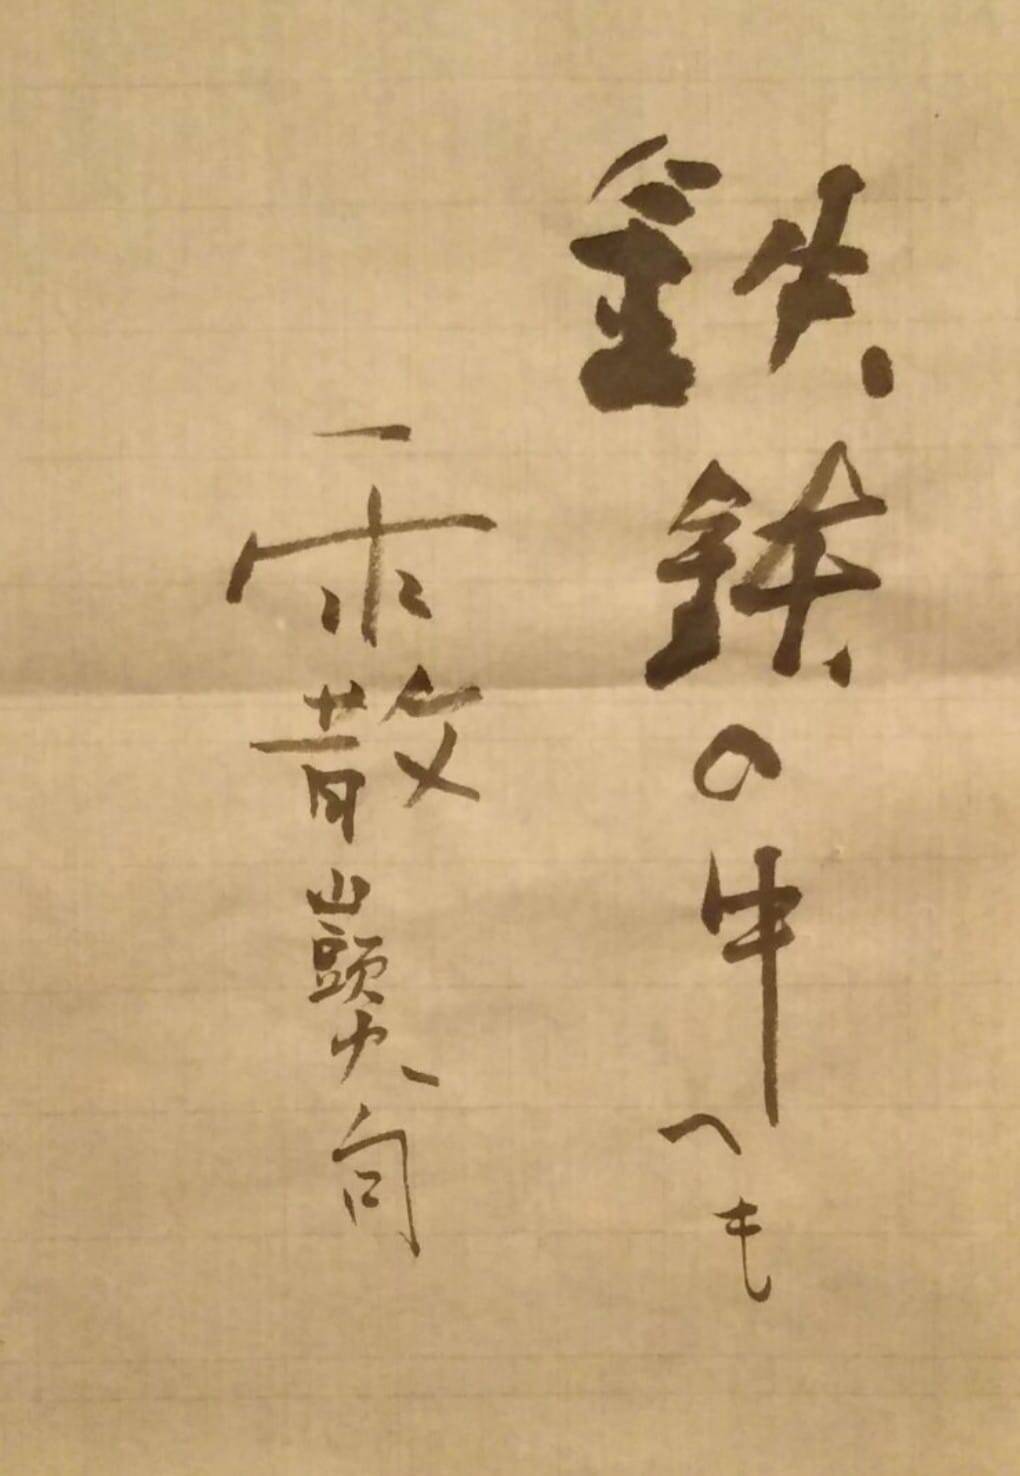 鉄鉢の中へも
霰 山頭火句